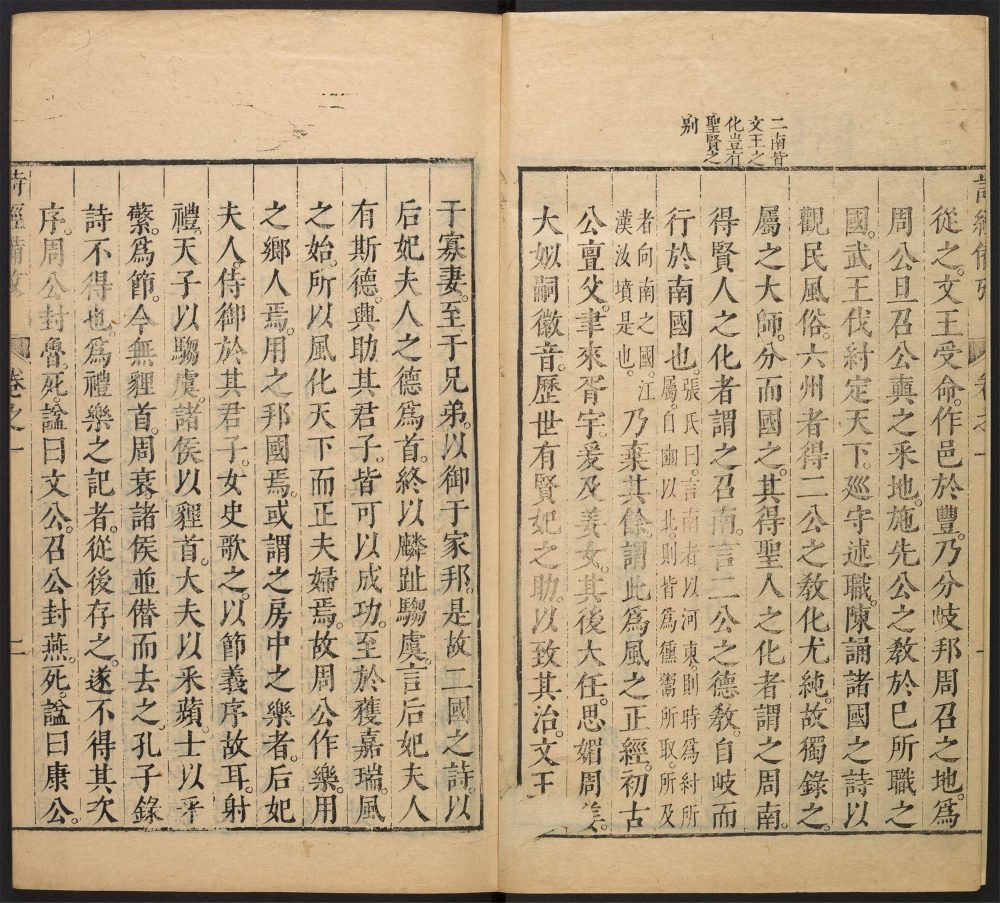 二南皆
文王之
化豈有
聖賢之
別
從之。文王受命。作邑於豐。乃分岐邦周召之地。為
周公旦召公奭之采地。施先公之教於已所職之
國。武王伐紂定天下。巡守述職。陳誦諸國之詩以
觀民風俗。六州者得二公之教化尤純。故獨錄之。
屬之大師。分而國之。其得聖人之化者謂之周南。
得賢人之化者謂之召南。言二公之德教。自岐而
行於南國也。張氏曰。言南者以河東。則時為紂所
屬。自豳以北。則皆為獯鬻所取。所及
者向南之國。江
漢汝墳是也。
乃棄其餘。謂此為風之正經。初古
公亶父。聿來胥宇。爰及姜女。其後大任。思媚周姜。
大姒嗣徽音。歷世有賢妃之助。以致其治。文王
于寡妻。至于兄弟。以御于家邦。是故二國之詩。以
后妃夫人之德為首。終以麟趾騶虞。言后妃夫人
有斯德。興助其君子。皆可以成功。至於獲嘉瑞。風
之始。所以風化天下而正夫婦焉。故周公作樂。用
之鄉人焉。用之邦國焉。或謂之房中之樂者。后妃
夫人。侍御於其君子。女史歌之。以節義序故耳。射
禮。天子以騶虞。諸侯以貍首。大夫以采蘋。士以采
蘩。為節。今無貍首。周衰。諸侯並僭而去之。孔子錄
詩不得也。為禮樂之記者。從後存之。遂不得其次
序。周公封魯。死。諡曰文公。召公封燕。死。諡曰康公。
詩經備考 卷之一 二